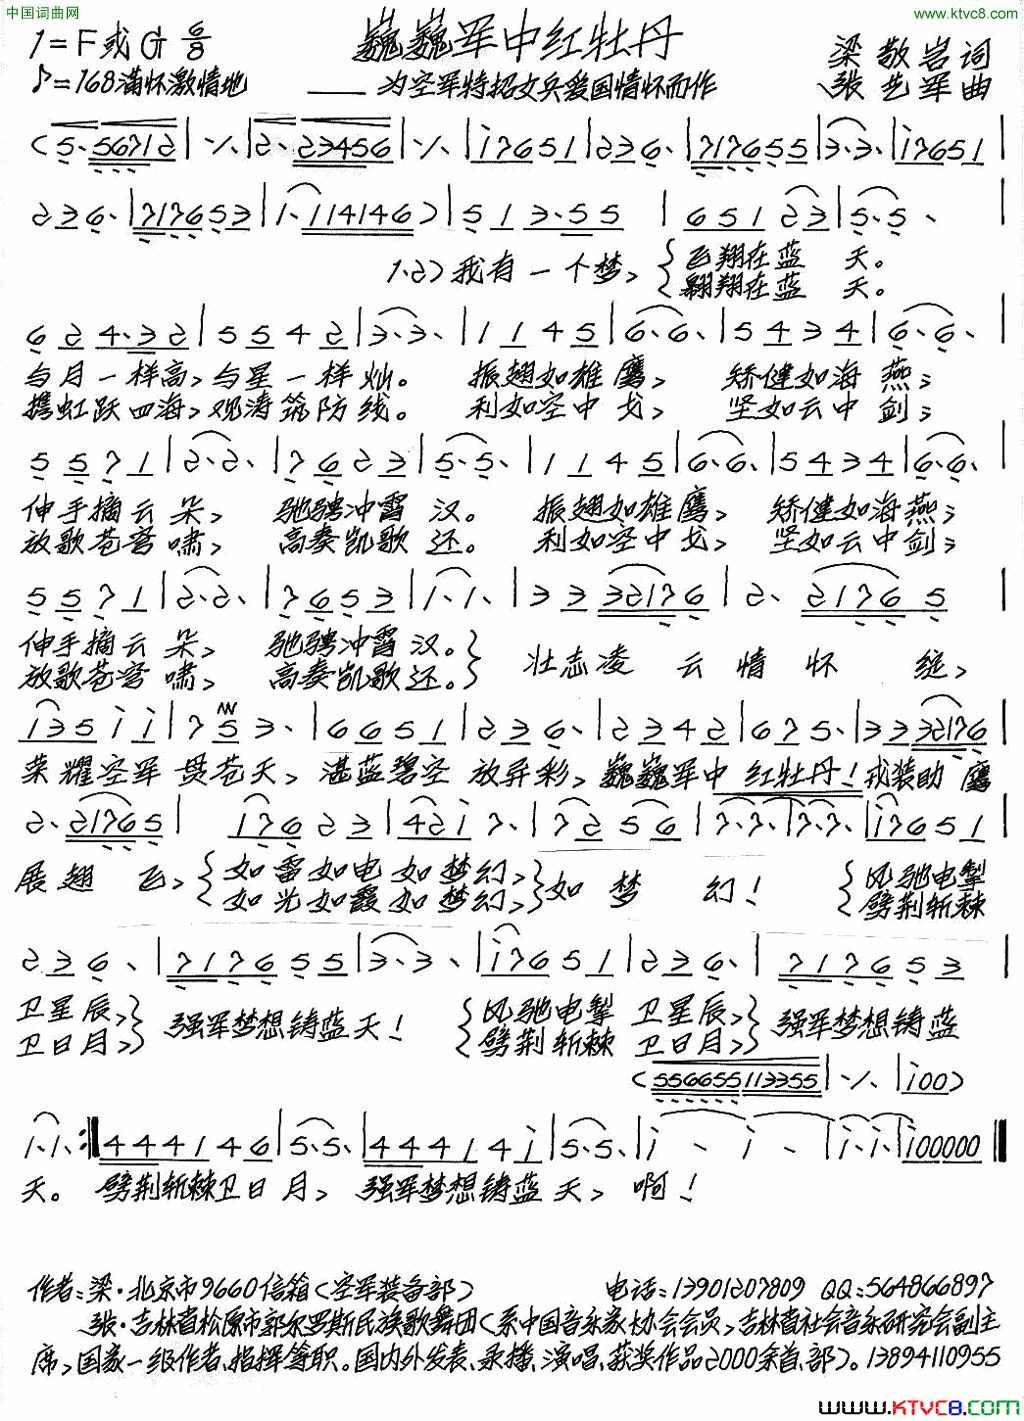 中国词曲网
www.ktvc8.com
1=F或G 6/8
巍巍军中红牡丹
梁敬岩词
♪=168满怀激情地
——为空军特招文兵爱国情怀而作
张艺军曲
(5·56712|٪|2·23456|٪|i7651|236·|717655|3·3·|i7651|
236·|717653|1·114146)|513·55|65123|5·5·|
1.2)我有一个梦, 飞翔在蓝 天。
翱翔在蓝 天。
624·32|5542|3·3·|1145|6·6·|5434|6·6·|
与月一样高,与星一样灿。 振翅如雄鹰, 矫健如海燕;
携虹跃四海,观涛筑防线。 利如空中戈, 坚如云中剑;
5571|2·2·|7623|5·5·|1145|6·6·|5434|6·6·|
伸手摘云朵, 驰骋冲霄汉。 振翅如雄鹰, 矫健如海燕;
放歌苍穹啸, 高奏凯歌还。 利如空中戈, 坚如云中剑;
5571|2·2·|7653|1·1·|3332176|2·21765|
伸手摘云朵, 驰骋冲霄汉。 壮志凌云情怀绽,
放歌苍穹啸, 高奏凯歌还。
i35ii|753·|6651|236·|2342|675·|3332176|
荣耀空军贯苍天,湛蓝碧空放异彩,巍巍军中红牡丹!戎装助鹰
2·21765|17623|42i7·|7256|7·7·|7·7·|i7651|
展翅飞, 如雷如电如梦幻, 如梦幻! 风驰电掣
如光如霞如梦幻, 劈荆斩棘
236·|717655|3·3·|i7651|236·|717653|
卫星辰, 强军梦想铸蓝天! 风驰电掣 卫星辰, 强军梦想铸蓝
卫日月, 劈荆斩棘 卫日月,
(556655113355|٪|i00)
1·1·:‖444146|5·5·|44414i|5·5·|i·i·|i·i·|i00000‖
天。 劈荆斩棘卫日月, 强军梦想铸蓝天, 啊!
作者:梁·北京市9660信箱(空军装备部) 电话:13901207809 QQ:564866897
张·吉林省松原市郭尔罗斯民族歌舞团(系中国音乐家协会会员,吉林省社会音乐研究会副主
席,国家一级作者、指挥等职。国内外发表、录播、演唱、获奖作品2000余首、部)。13894110955
www.KTVC8.com